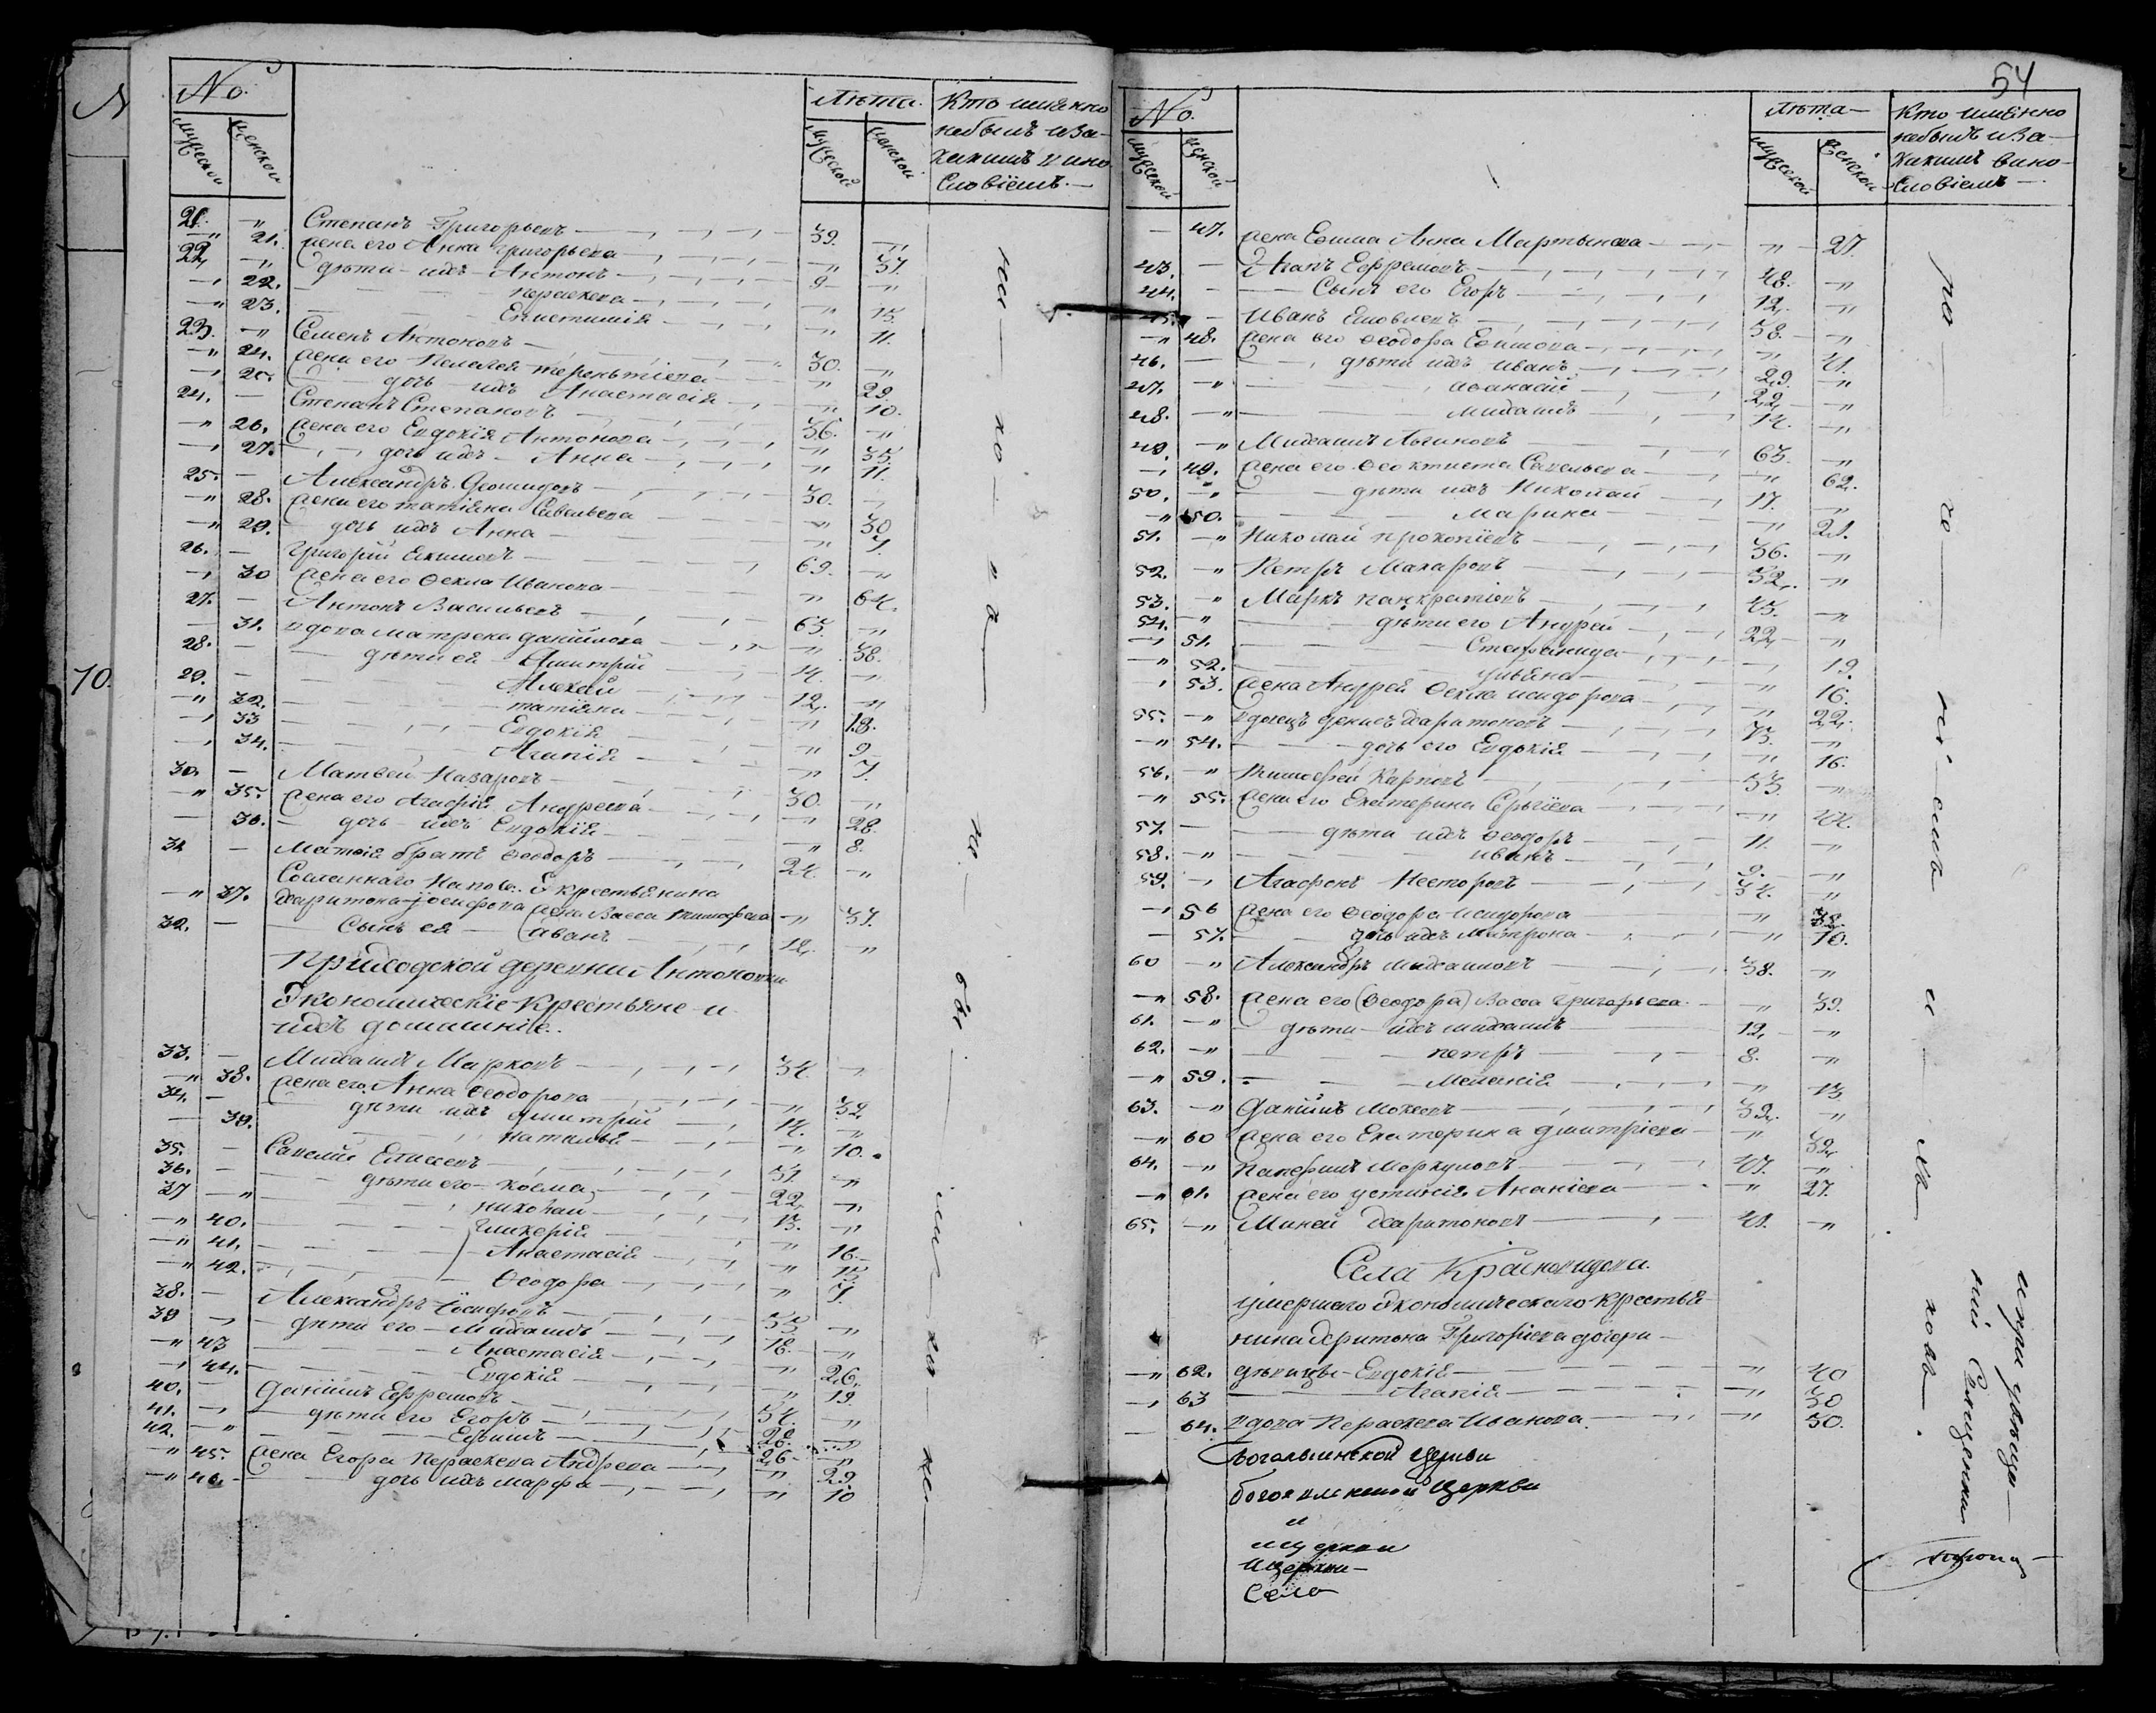 No.
мужеской
женской
Лѣта.
мужеской
женской
Кто именно
небылъ иза
какимъ вино
словіемъ.
21. " Степанъ Григорьевъ 39. "
" 21. жена его Анна Григорьева " 37.
22. " дѣти ихъ Антонъ 9 "
" 22. параскева " 13.
" 23. Епистимія " 11.
23. " Семенъ Антоновъ 30. "
" 24. жена его Пелагея терентіева " 29.
" 25. дочь ихъ Анастасія " 10.
24. Степанъ Степановъ 36. "
" 26. жена его Евдокія Антонова " 35.
" 27. дочь ихъ Анна " 11.
25. Александръ Диомидовъ 30. "
" 28. жена его татіяна Савельева " 30
" 29. дочь ихъ Анна " 7.
26. Григорій Екимовъ 69. "
" 30 жена его Ѳекла Иванова " 64.
27. Антонъ Васильевъ 63. "
31. вдова Матрена данилова " 38.
28. дѣти ея Дмитрій 14. "
29. Алексей 12. "
" 32. татіяна " 18.
" 33 Евдокія " 9
" 34. Агапія " 7.
30. Матвей Назаровъ 30. "
" 35. жена его Агафія Андреева " 28.
36. дочь ихъ Евдокія " 8.
31. Матвія братъ Ѳеодоръ 24. "
Сосланнаго Напосе. Е крестьянина
" 37. Харитона Іосифова жена Васса Тимофеева " 37.
32. Сынъ ея Иванъ 12. "
Приходской деревни Антоновки
Экономическіе Крестьяне и
ихъ домашніе.
33. Михаилъ Марковъ 34. "
" 38. жена его Анна Ѳеодорова " 32
34. дѣти ихъ дмитрій 14. "
39. наталья " 10.
35. Савелій Елисеевъ 51. "
36. дѣти его Косма 22. "
37 " николай 13. "
" 40. Гликерія " 16.
" 41. Анастасія " 13
" 42. Ѳеодора " 7.
38. Александръ Іосифовъ 53 "
39 дѣти его Михаилъ 18. "
" 43 Анастасія " 26.
" 44. Евдокія " 19.
40. Даниилъ Ефремовъ 54. "
41. дѣти его Егоръ 28. "
42. " Ефимъ 26 "
" 45. жена Егора Параскева Андреева " 29.
" 46. дочь ихъ марфа " 10
54
No.
мужеской
женской
Лѣта
мужеской
женской
Кто имѣнно
небылъ иза
какимъ вино
словіемъ
47. жена Ефима Анна Мартынова " 27.
43. Агапъ Ефремовъ 48. "
44. Сынъ его Егоръ 12. "
45. Иванъ Іаковлевъ 58. "
" 48. жена его Ѳеодора Ефимова " 41.
46. дѣти ихъ иванъ 29. "
47. " аѳанасій 22. "
48. " михаилъ 14. "
49. " Михаилъ Логиновъ 63. "
" 49. жена его Ѳеоктиста Савельева " 62.
50. " дѣти ихъ Николай 17. "
" 50. Марина " 21.
51. " Николай прокопіевъ 36. "
52. " Петръ Макаровъ 32. "
53. " Маркъ панкратіовъ 43. "
54. " дѣти его Андрей 22 "
" 51. Стефанида " 19.
" 52. ульяна " 16.
" 53. жена Андрея Ѳекла исидорова " 22.
55. " вдовецъ денисъ Харитоновъ 73. "
" 54. дочь его Евдокія " 16.
56. " тимофей Карповъ 53. "
" 55. жена его Екатерина Сергіева " 44.
57. дѣти ихъ Ѳеодоръ 11. "
58. " иванъ 9. "
59. Агафонъ Несторовъ 34. "
" 56 жена его Ѳеодора Исидорова "
57. дочь ихъ Матрона " 10.
60 " Александръ михаиловъ 38. "
" 58. жена его (Ѳеодора) Васса Григорьева " 39.
61. " дѣти ихъ михаилъ 12. "
62. " петръ 8. "
" 59. Меланія " 13
63. " Даніилъ Мокеевъ 32. "
" 60 жена его Екатерина дмитріева " 32.
64. " Панфилъ Меркуловъ 47. "
" 61. жена его устинія Ананіева " 27.
65. " Миней Харитоновъ 41. "
Села Красновидова.
умершаго экономическаго крестья
нина Харитона Григоріева дочери
" 62. дѣвицы Евдокія " 40
63 Агапія " 38
64. вдова Параскева Иванова " 50.
Богоявленской Церкви
богоявленской Церкви
и
ицеркви
ицеркви
Село